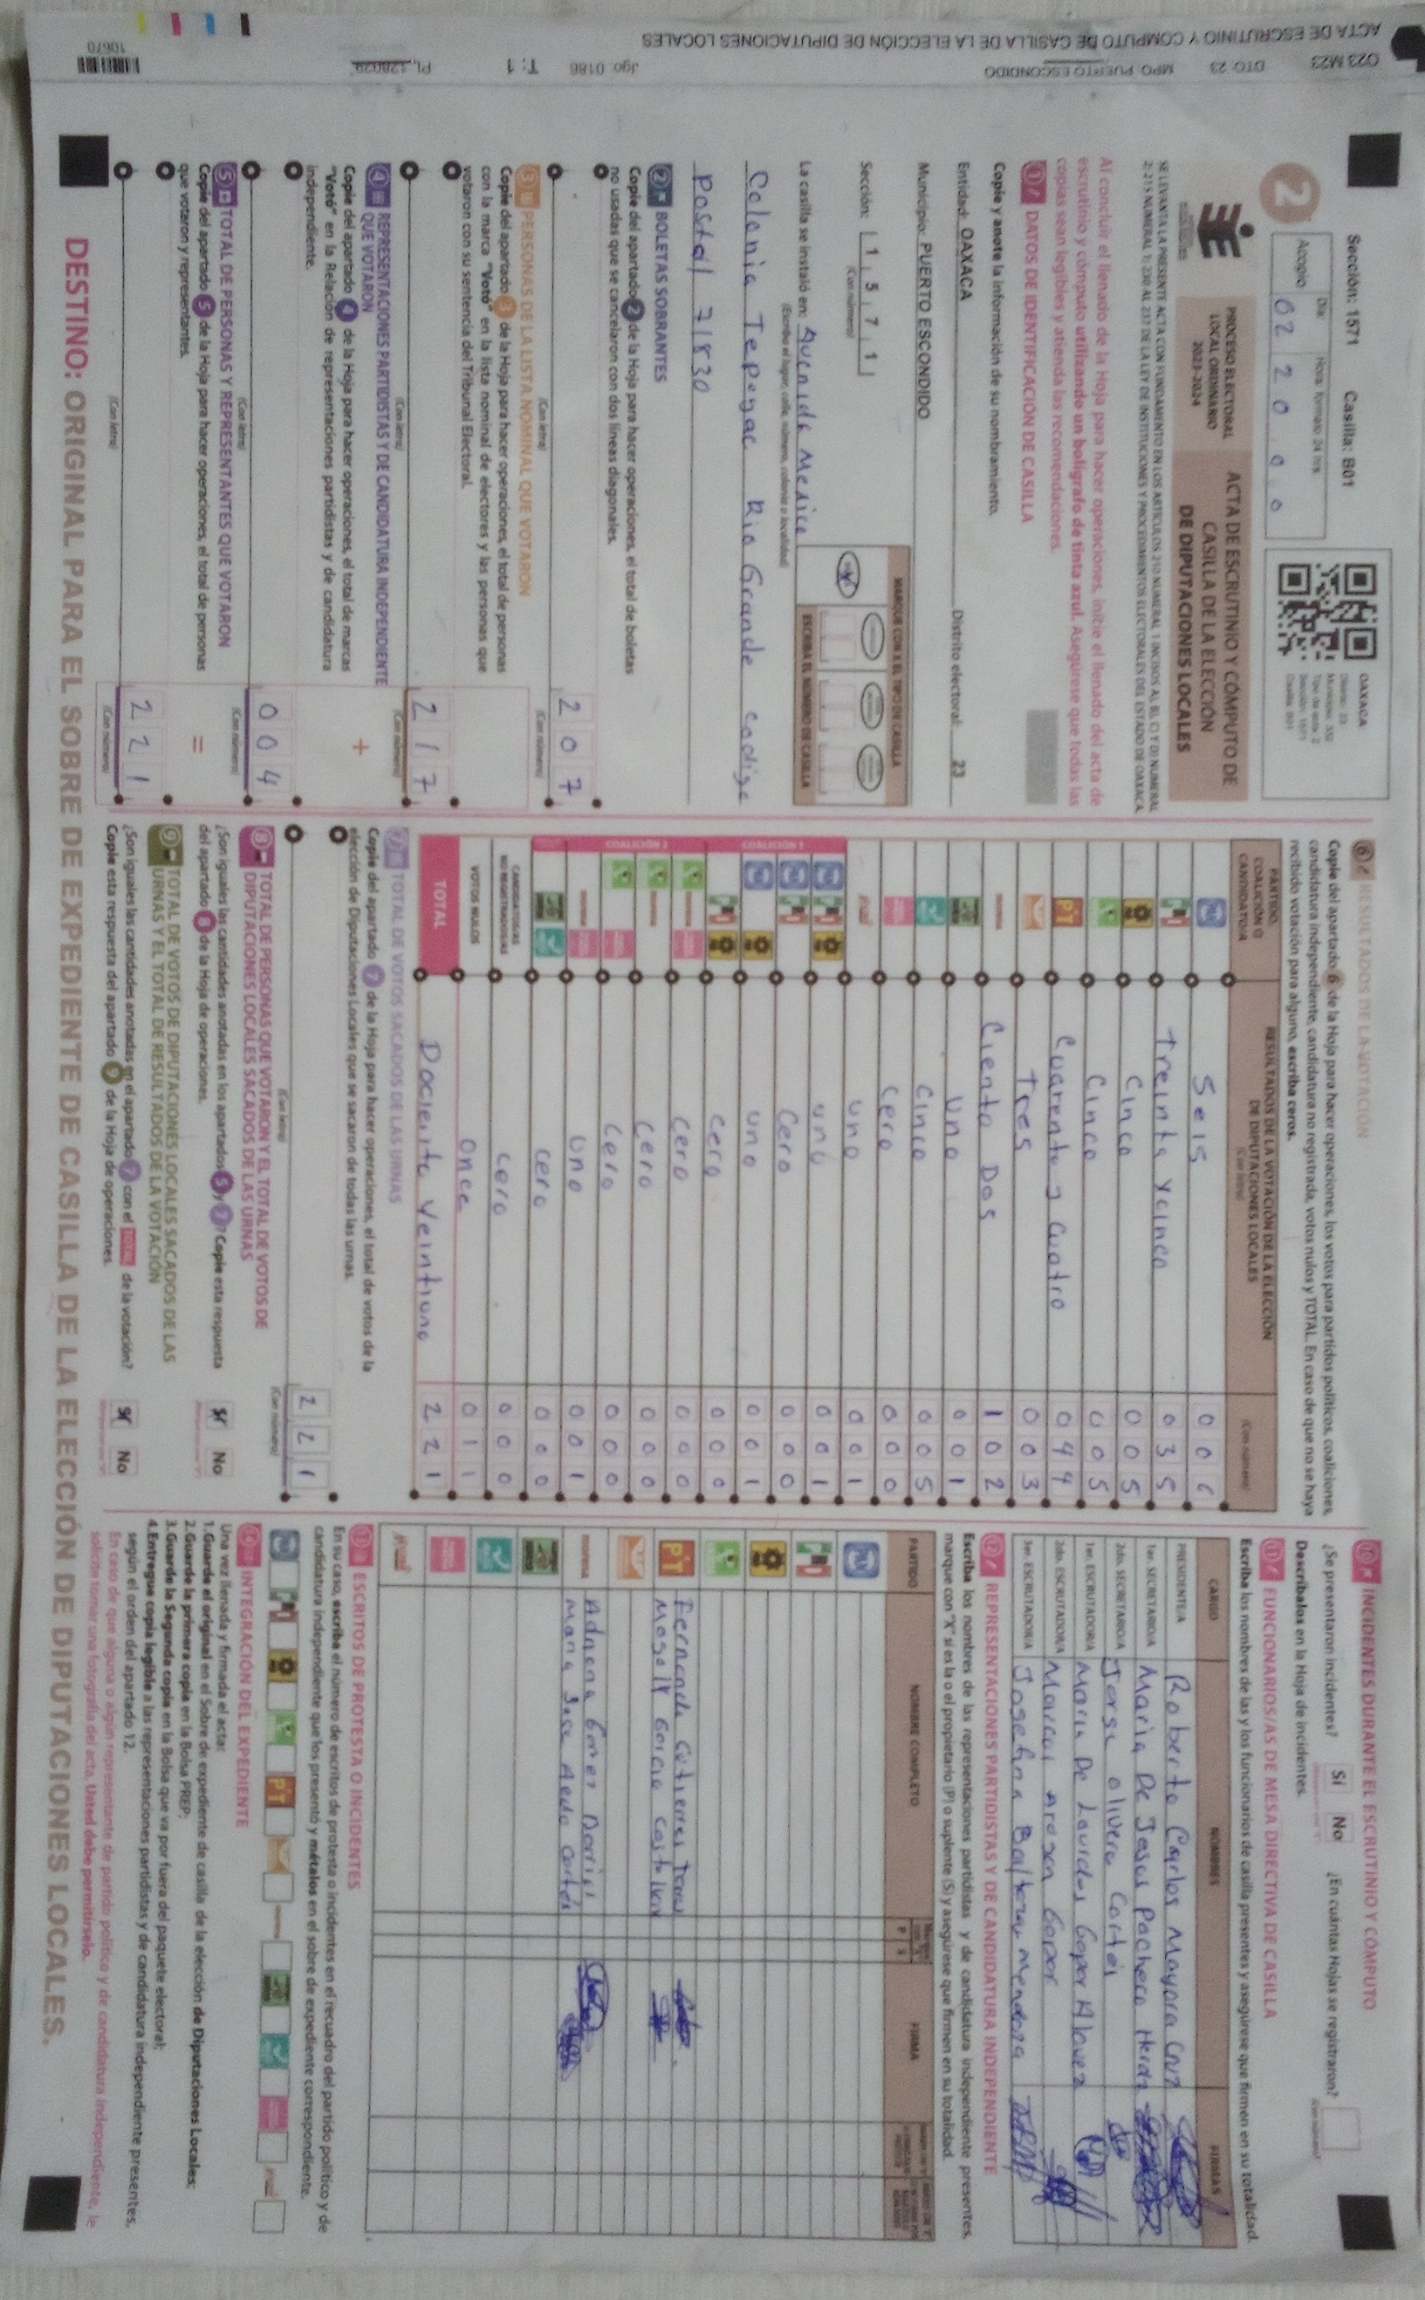 O23 M23 DTO: 23 MPO: PUERTO ESCONDIDO
ACTA DE ESCRUTINIO Y COMPUTO DE CASILLA DE LA ELECCIÓN DE DIPUTACIONES LOCALES
Jgo: 0186 T: 1
10670
Sección: 1571 Casilla: B01
2
Día Hora: formato 24 hrs.
Acopio 02 20 00
OAXACA
PROCESO ELECTORAL
LOCAL ORDINARIO
2023-2024
ACTA DE ESCRUTINIO Y CÓMPUTO DE
CASILLA DE LA ELECCIÓN
DE DIPUTACIONES LOCALES
Al concluir el llenado de la Hoja para hacer operaciones, inicie el llenado del acta de
escrutinio y cómputo utilizando un bolígrafo de tinta azul. Asegúrese que todas las
copias sean legibles y atienda las recomendaciones.
1 DATOS DE IDENTIFICACIÓN DE CASILLA
Copie y anote la información de su nombramiento.
Entidad: OAXACA Distrito electoral: 23
Municipio: PUERTO ESCONDIDO
Sección: 1 5 7 1
(Con número)
MARQUE CON X EL TIPO DE CASILLA
ESCRIBA EL NÚMERO DE CASILLA
La casilla se instaló en: Avenida Mexico
(Escriba el lugar, calle, número, colonia o localidad)
Colonia Tepeyac Rio Grande codigo
Postal 71830
2 BOLETAS SOBRANTES
Copie del apartado 2 de la Hoja para hacer operaciones, el total de boletas
no usadas que se cancelaron con dos líneas diagonales.
207
(Con letra) (Con número)
3 PERSONAS DE LA LISTA NOMINAL QUE VOTARON
Copie del apartado 3 de la Hoja para hacer operaciones, el total de personas
con la marca "Votó" en la lista nominal de electores y las personas que
votaron con su sentencia del Tribunal Electoral.
217
(Con letra) (Con número)
4 REPRESENTACIONES PARTIDISTAS Y DE CANDIDATURA INDEPENDIENTE
QUE VOTARON
Copie del apartado 4 de la Hoja para hacer operaciones, el total de marcas
"Votó" en la Relación de representaciones partidistas y de candidatura
independiente.
+
004
(Con letra) (Con número)
5 TOTAL DE PERSONAS Y REPRESENTANTES QUE VOTARON
Copie del apartado 5 de la Hoja para hacer operaciones, el total de personas
que votaron y representantes.
=
221
(Con letra) (Con número)
6 RESULTADOS DE LA VOTACIÓN
Copie del apartado 6 de la Hoja para hacer operaciones, los votos para partidos políticos, coaliciones,
candidatura independiente, candidatura no registrada, votos nulos y TOTAL. En caso de que no se haya
recibido votación para alguno, escriba ceros.
PARTIDO,
COALICIÓN O
CANDIDATO/A
RESULTADOS DE LA VOTACIÓN DE LA ELECCIÓN
DE DIPUTACIONES LOCALES
(Con letra) (Con número)
Seis 006
Treinta y cinco 035
Cinco 005
Cinco 005
PT Cuarenta y Cuatro 044
Tres 003
Ciento Dos 102
Uno 001
Cinco 005
Cero 000
Uno 001
COALICIÓN 1
uno 001
Cero 000
uno 001
cero 000
COALICIÓN 2
cero 000
cero 000
cero 000
uno 001
cero 000
CANDIDATOS/AS
NO REGISTRADOS/AS cero 000
VOTOS NULOS once 011
TOTAL Dociento Veintiuno 221
7 TOTAL DE VOTOS SACADOS DE LAS URNAS
Copie del apartado 7 de la Hoja para hacer operaciones, el total de votos de la
elección de Diputaciones Locales que se sacaron de todas las urnas.
221
(Con letra) (Con número)
8 TOTAL DE PERSONAS QUE VOTARON Y EL TOTAL DE VOTOS DE
DIPUTACIONES LOCALES SACADOS DE LAS URNAS
¿Son iguales las cantidades anotadas en los apartados 5 y 7? Copie esta respuesta
del apartado 8 de la Hoja de operaciones.
Sí No
9 TOTAL DE VOTOS DE DIPUTACIONES LOCALES SACADOS DE LAS
URNAS Y EL TOTAL DE RESULTADOS DE LA VOTACIÓN
¿Son iguales las cantidades anotadas en el apartado 7 con el TOTAL de la votación?
Copie esta respuesta del apartado 9 de la Hoja de operaciones.
Sí No
10 INCIDENTES DURANTE EL ESCRUTINIO Y CÓMPUTO
¿Se presentaron incidentes? Sí No ¿En cuántas Hojas se registraron?
Descríbalos en la Hoja de incidentes.
11 FUNCIONARIOS/AS DE MESA DIRECTIVA DE CASILLA
Escriba los nombres de las y los funcionarios de casilla presentes y asegúrese que firmen en su totalidad.
CARGO NOMBRES FIRMAS
PRESIDENTE/A Roberto Carlos Mayora Cruz
1er. SECRETARIO/A Maria De Jesus Pacheco
2do. SECRETARIO/A Jorge olivera Cortés
1er. ESCRUTADOR/A Maria De Lourdes
2do. ESCRUTADOR/A Marcos
3er. ESCRUTADOR/A Josefina Baltazar mendoza
12 REPRESENTACIONES PARTIDISTAS Y DE CANDIDATURA INDEPENDIENTE
Escriba los nombres de las representaciones partidistas y de candidatura independiente presentes,
marque con "X" si es la o el propietario (P) o suplente (S) y asegúrese que firmen en su totalidad.
PARTIDO NOMBRE COMPLETO P S FIRMA
PT Fernanda
Garcia
Adriana
Maria Jose
13 ESCRITOS DE PROTESTA O INCIDENTES
En su caso, escriba el número de escritos de protesta o incidentes en el recuadro del partido político y de
candidatura independiente que los presentó y métalos en el sobre de expediente correspondiente.
PT
INTEGRACIÓN DEL EXPEDIENTE
Una vez llenada y firmada el acta:
1.Guarde el original en el Sobre de expediente de casilla de la elección de Diputaciones Locales;
2.Guarde la primera copia en la Bolsa PREP;
3.Guarde la Segunda copia en la Bolsa que va por fuera del paquete electoral;
4.Entregue copia legible a las representaciones partidistas y de candidatura independiente presentes,
según el orden del apartado 12.
En caso de que alguna o algún representante de partido político y de candidatura independiente, le
solicite tomar una fotografía del acta, Usted debe permitírselo.
DESTINO: ORIGINAL PARA EL SOBRE DE EXPEDIENTE DE CASILLA DE LA ELECCIÓN DE DIPUTACIONES LOCALES.